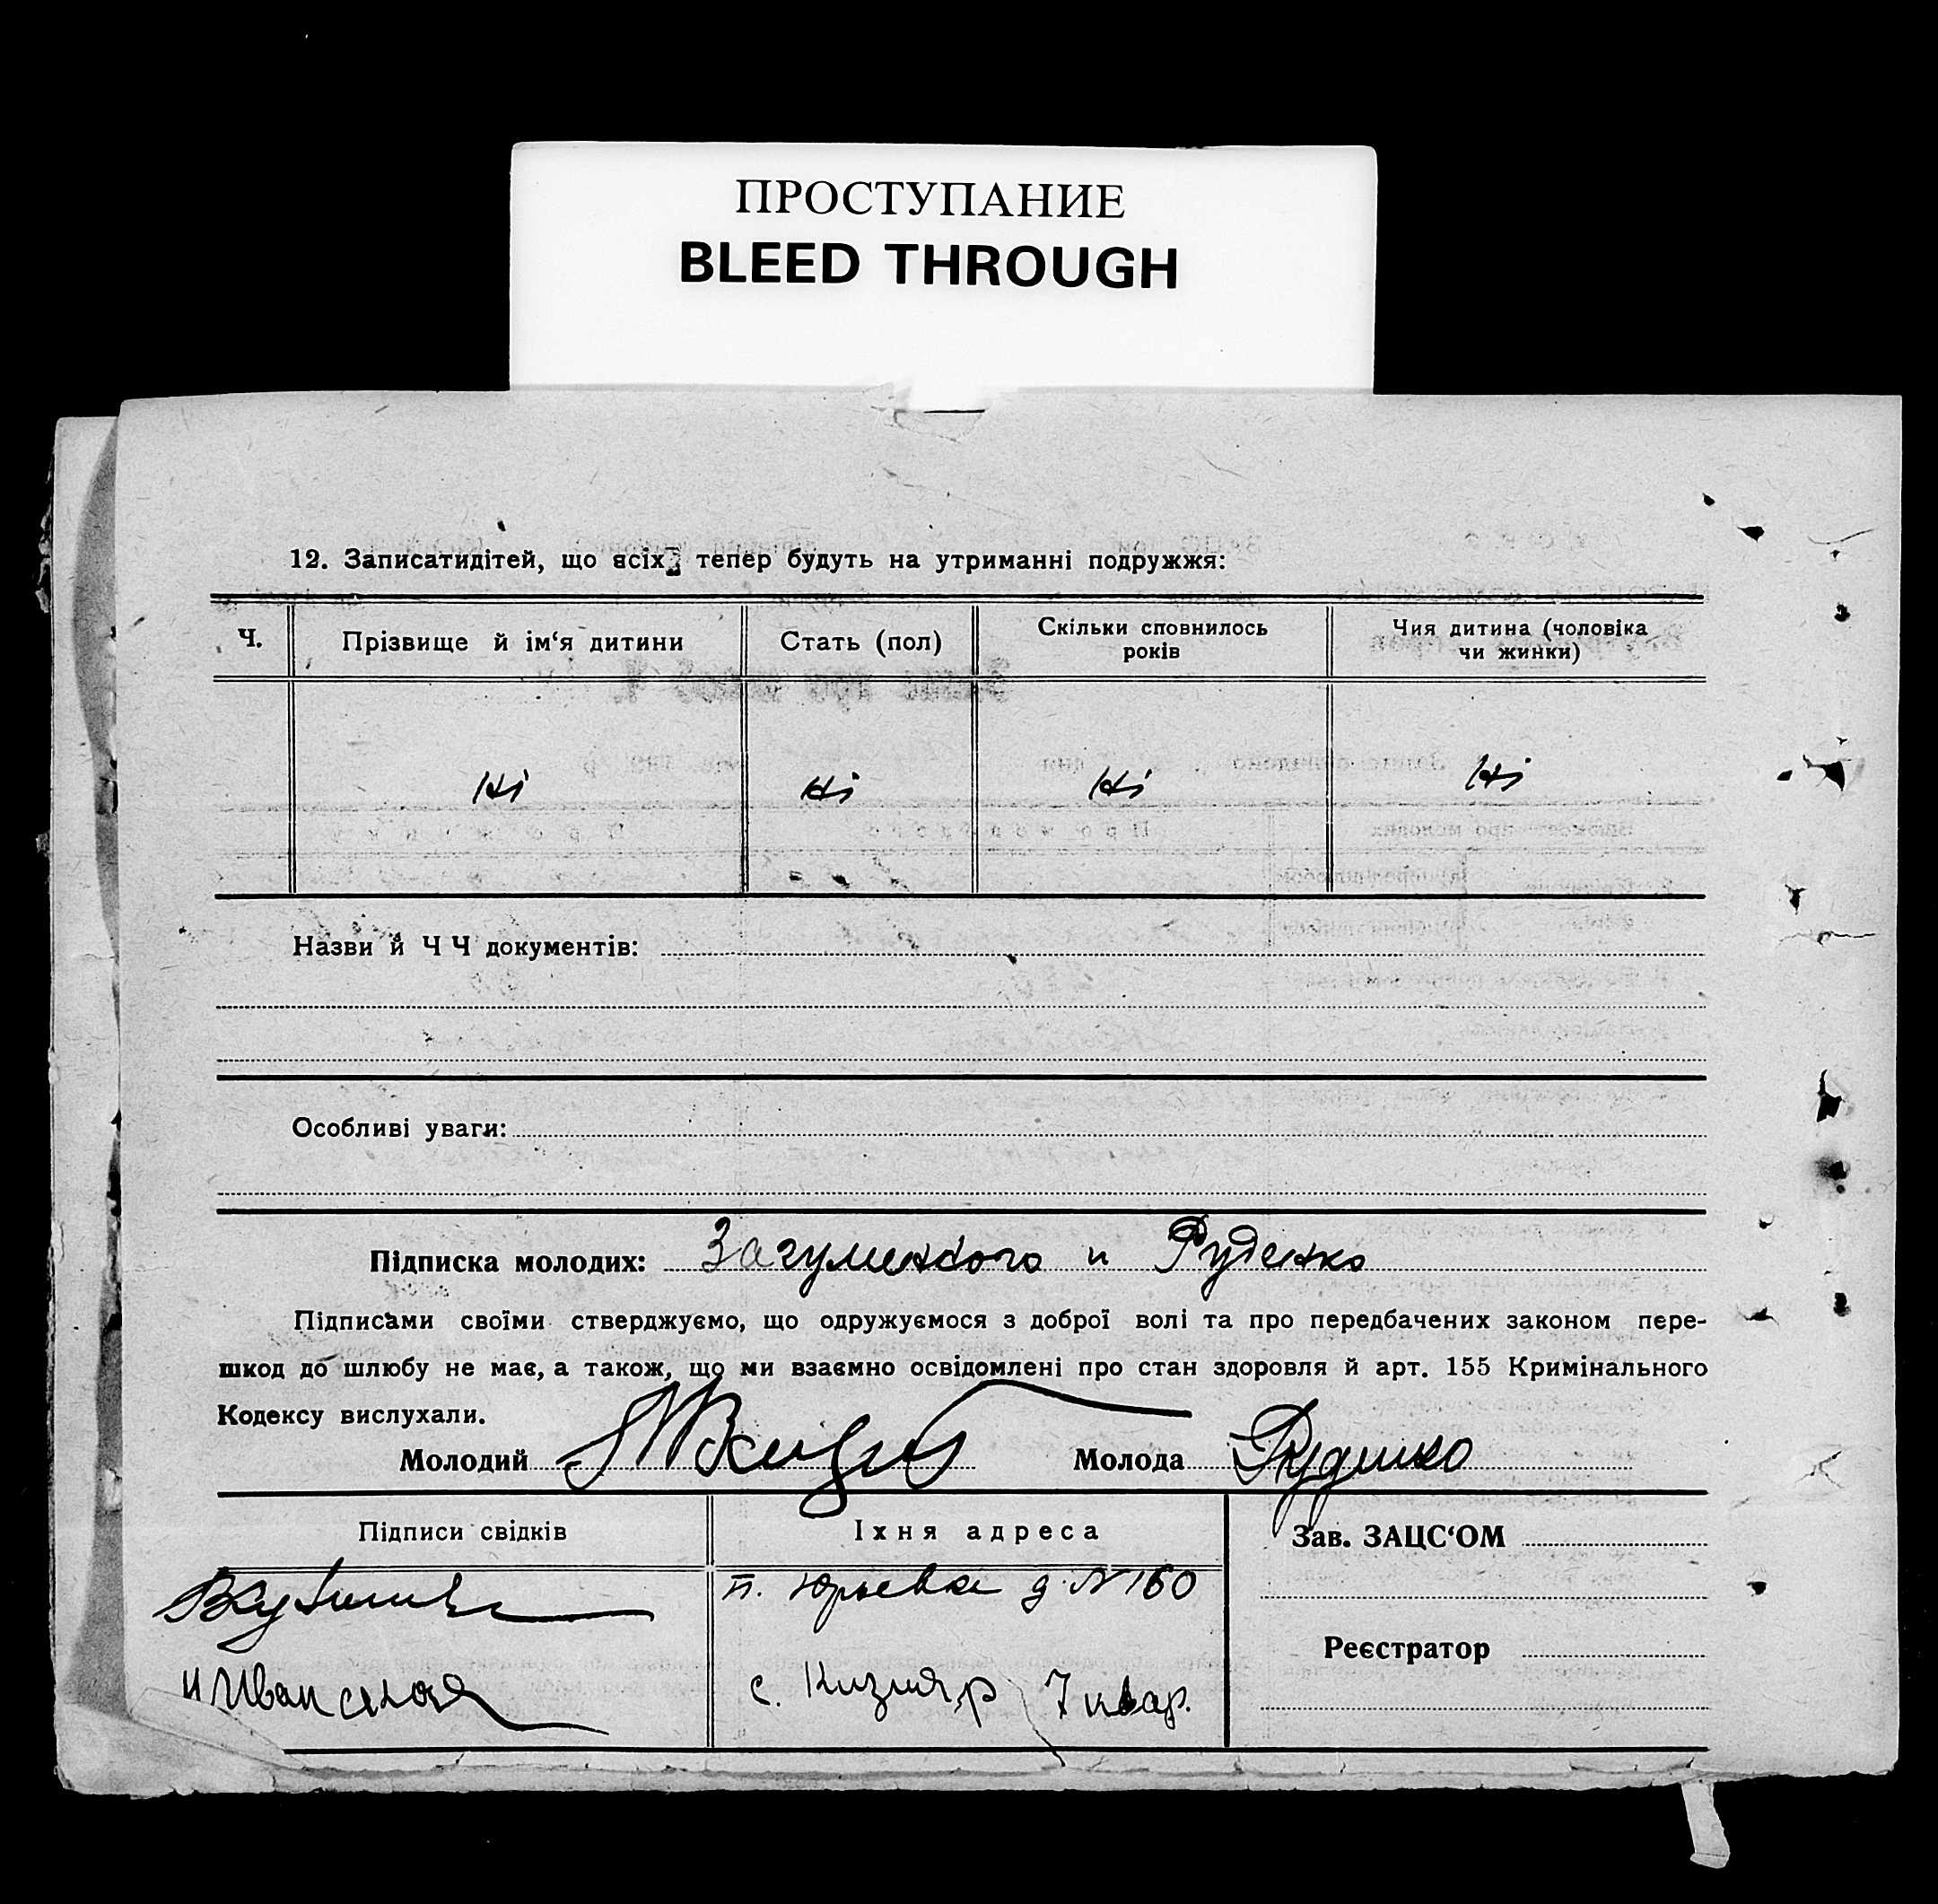 ПРОСТУПАНИЕ
BLEED THROUGH
12. Записатидітей, що всіх тепер будуть на утриманні подружжя:
Ч. Прізвище й ім‘я дитини Стать (пол) Скільки сповнилось років Чия дитина (чоловіка чи жинки)
Ні Ні Ні Ні
Назви й Ч Ч документів:
Особливі уваги:
Підписка молодих: Загуменного и Руденко
Підписами своїми стверджуємо, що одружуємося з доброї волі та про передбачених законом пере-
шкод до шлюбу не має, а також, що ми взаємно освідомлені про стан здоровля й арт. 155 Кримінального
Кодексу вислухали.
Молодий Молода Руденко
Підписи свідків Їхня адреса Зав. ЗАЦС‘ОМ
п. Юрьевка д. № 160
Реєстратор
с. Кизияр 7 квар.